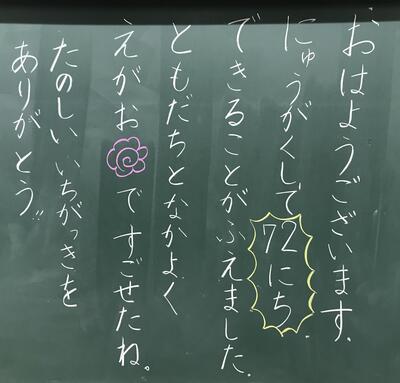 おはようございます.
にゅうがくして72にち
できることがふえました.
ともだちとなかよく
えがおですごせたね。
たのしいいちがっきを
ありがとう!!